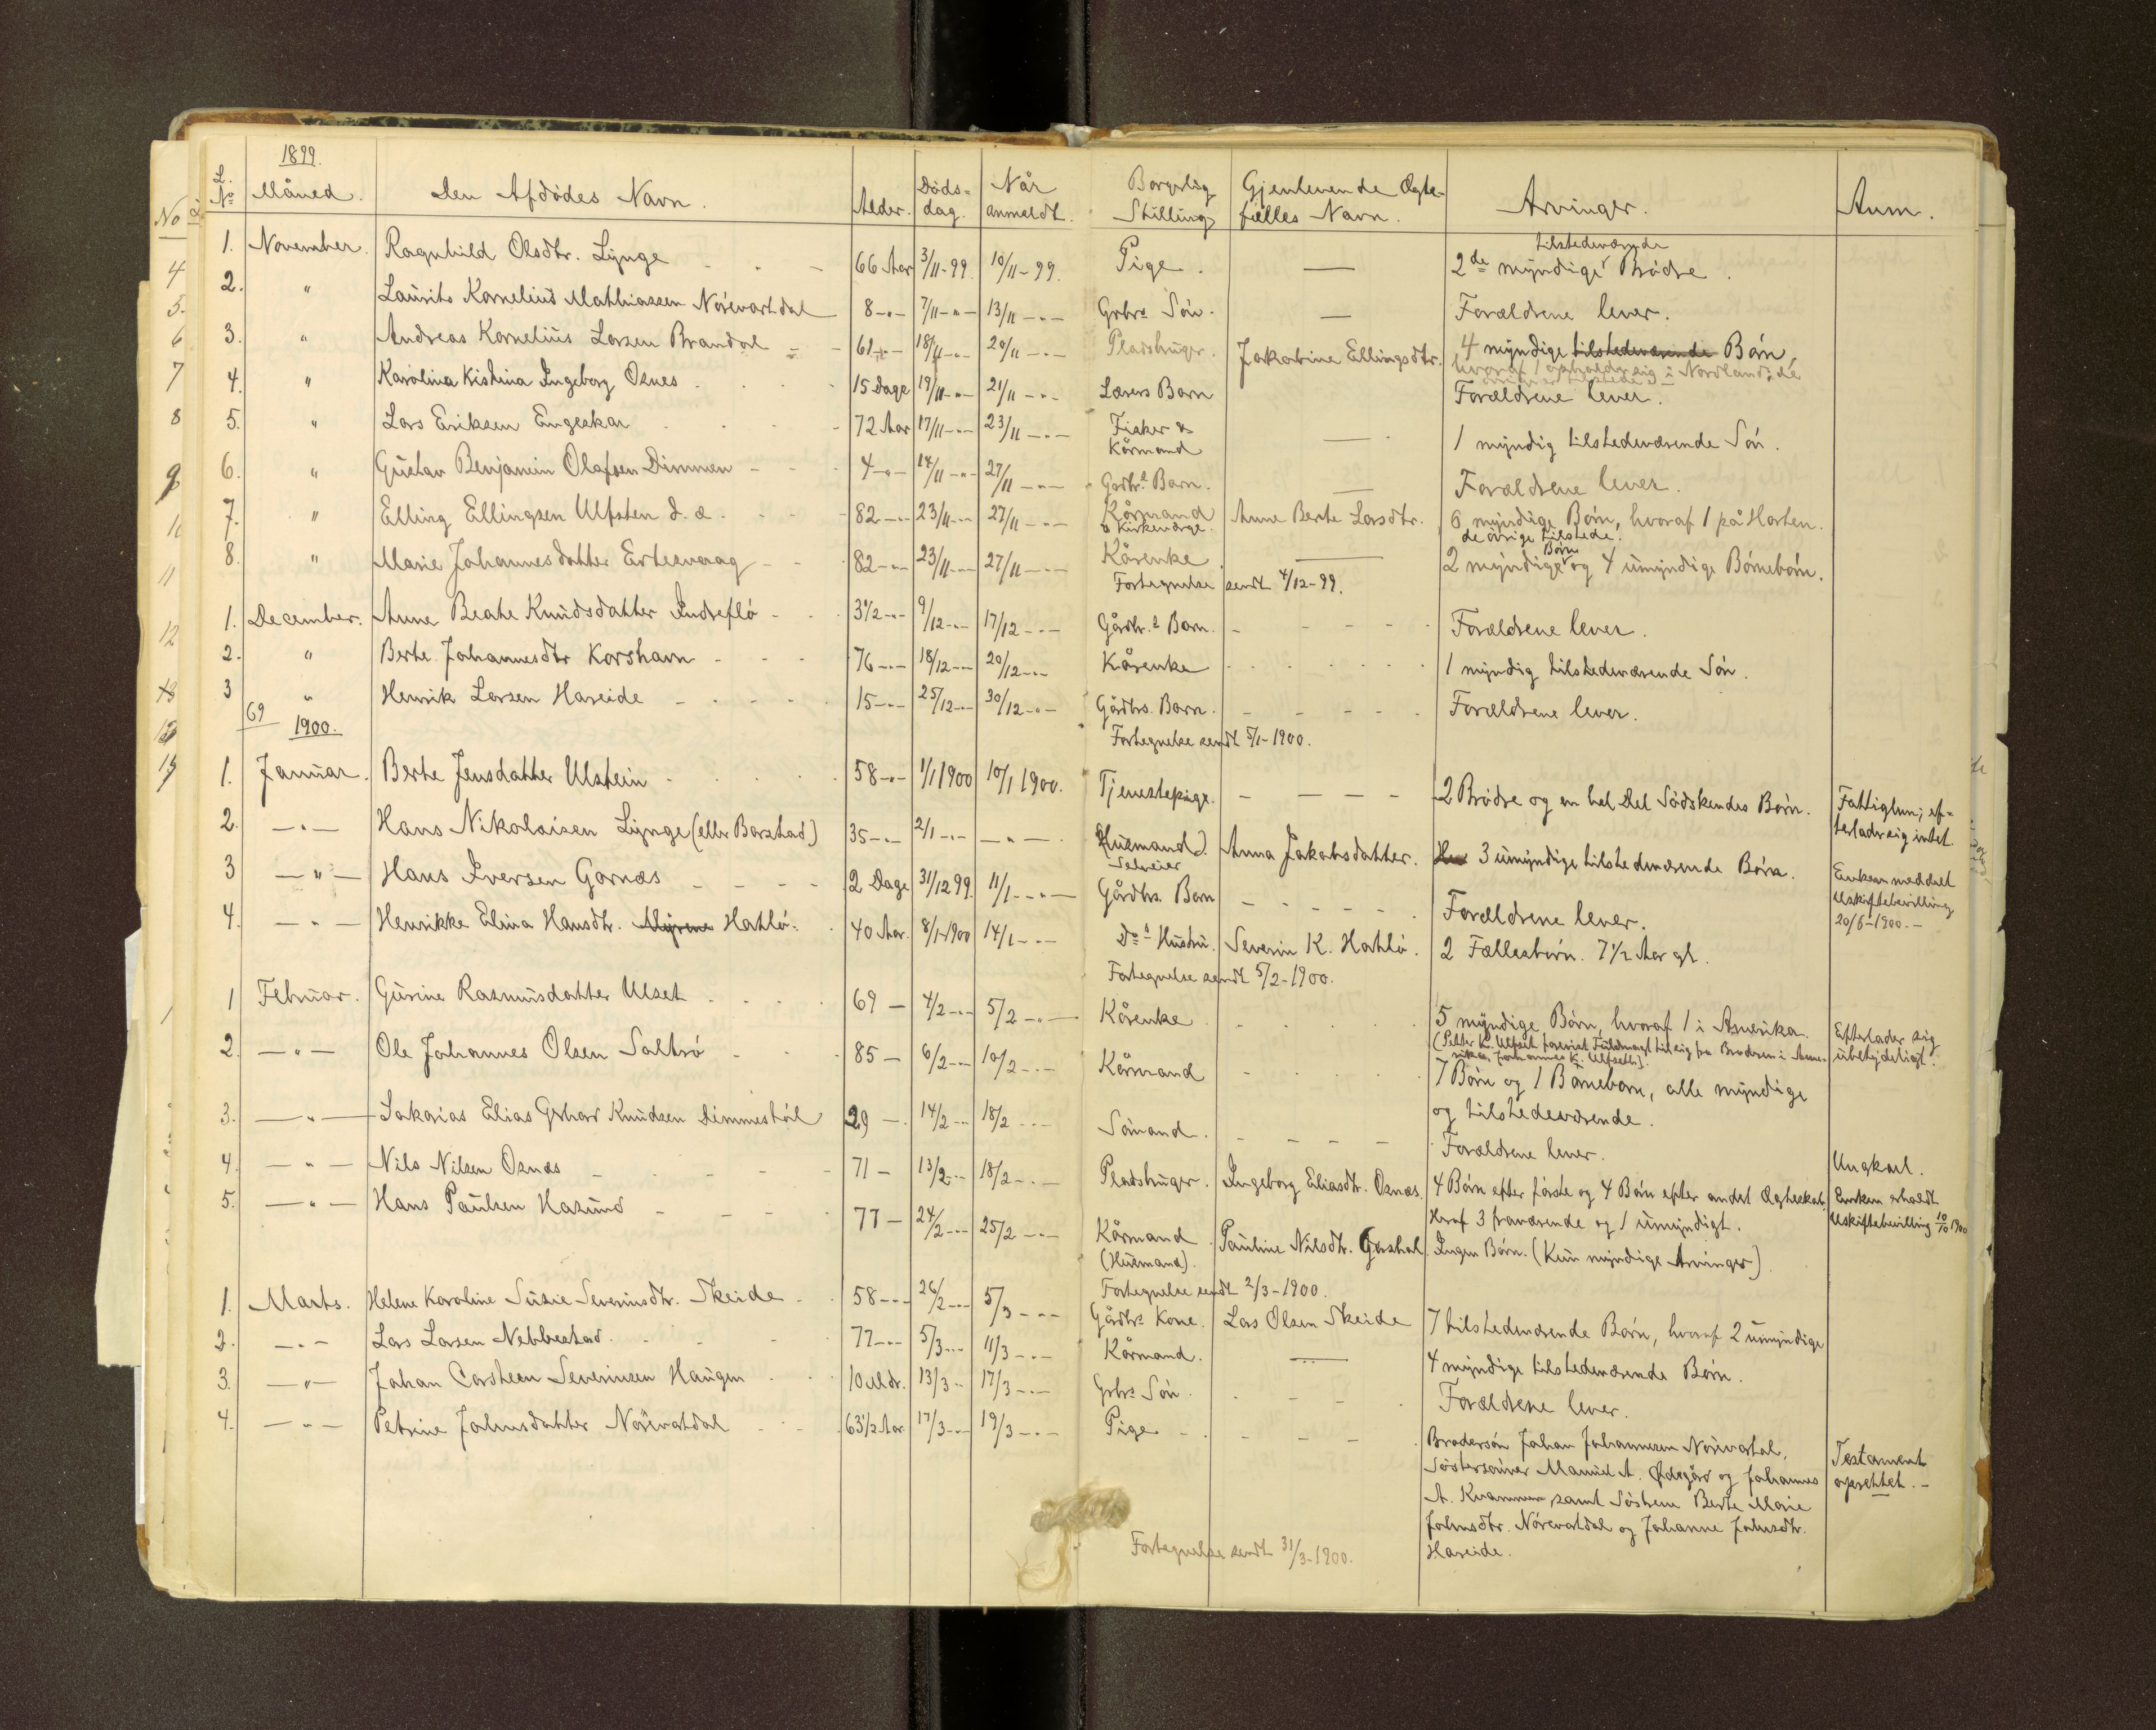 1899.
L. No Måned. Den Afdödes Navn. Alder. Döds=dag. Når anmeldt. Borgerlig Stilling Gjenlevende Ægte-fælles Navn. Arvinger. Anm.
1. November. Ragnhild Olsdtr. Lÿnge 66 Aar 3/11-99. 10/11-99. Pige. — 2de mÿndige tilstedeværende Brödre.
2. " Laurits Kornelius Mathiassen Nörevartdal 8 -"- 7/11 -"- 13/11 -"- Grbrs Sön. — Forældrene lever.
3. " Andreas Kornelius Larsen Brandal 61 -"- 18/11 -"- 20/11 -"- Pladsbruger. Jakobine Ellingsdtr. 4 mÿndige tilstedeværende Börn,
hvoraf 1 opholder sig i Nordland; de
övrige er tilstede.
4. " Karolina Kistina Ingeborg Osnes 15 Dage 19/11 -"- 21/11 -"- Lærers Barn Forældrene lever.
5. " Lars Eriksen Engeskar 72 Aar 17/11 -"- 23/11 -"- Fisker & Kårmand — 1 mÿndig tilstedeværende Sön.
6. " Gustav Benjamin Olafsen Dimmen 4 -"- 14/11 -"- 27/11 -"- Gårdbrs Barn. — Forældrene lever.
7. " Elling Ellingsen Ulfsten d. æ. 82 -"- 23/11 -"- 27/11 -"- Kårmand & Kirkeværge. Anne Berte Larsdtr. 6 mÿndige Börn, hvoraf 1 på Horten.
de övrige tilstede.
8. " Marie Johannesdatter Ertesvaag 82 -"- 23/11 -"- 27/11 -"- Kårenke — 2 mÿndige Börn og 4 umÿndige Börnebörn.
Fortegnelse sendt 4/12-99.
1. December. Anne Beate Knudsdatter Indreflö 3 1/2 -"- 9/12 -"- 17/12 -"- Gårdbrs Barn. Forældrene lever.
2. " Berte Johannesdtr Korshavn 76 -"- 18/12 -"- 20/12 -"- Kårenke 1 mÿndig tilstedeværende Sön.
3 " Henrik Larsen Hareide 15 -"- 25/12 -"- 30/12 -"- Gårdbrs. Barn. Forældrene lever.
69
1900. Fortegnelse sendt 5/1-1900.
1. Januar. Berte Jensdatter Ulstein 58 -"- 1/1 1900 10/1 1900. Tjenestepige. 2 Brödre og en hel Del Södskendes Börn. Fattiglem; ef=
terlader sig intet.
2. -"- Hans Nikolaisen Lÿnge (eller Borstad) 35 -"- 2/1 -"- -"- (Husmand). Selveier Anna Jakobsdatter. 3 umÿndige tilstedeværende Börn. Enken meddelt
Uskiftebevilling
20/6-1900.-
3 -"- Hans Iversen Garnæs 2 Dage 31/12 99. 11/1 -"- Gårdbrs. Barn Forældrene lever.
4. -"- Henrikke Elina Hansdtr. Mÿrene Hatlö. 40 Aar. 8/1-1900 14/1 -"- Dos Hustru. Severin K. Hatlö. 2 Fællesbörn. 7 1/2 Aar gl.
Fortegnelse sendt 5/2-1900.
1 Februar. Gurine Rasmusdatter Ulset 69 - 4/2 -"- 5/2 -"- Kårenke 5 mÿndige Börn, hvoraf 1 i Amerika. Efterlader sig
ubetydeligt.
(Petter K. Ulset forevist Fuldmagt til sig fra Broderen i Ame-
rika, Johannes K. Ulfseth).
2. -"- Ole Johannes Olsen Saltrö 85 - 6/2 -"- 10/2 -"- Kårmand 7 Börn og 1 Börnebarn, alle mÿndige
og tilstedeværende.
3. -"- Sakarias Elias Gerhard Knudsen Dimmestöl 29 - 14/2 -"- 18/2 -"- Sömand. Forældrene lever. Ungkarl.
4. -"- Nils Nilsen Osnæs 71 - 13/2 -"- 18/2 -"- Pladsbruger. Ingeborg Eliasdtr. Osnæs. 4 Börn efter förste og 4 Börn efter andet Ægteskab. Enken erholdt
Heraf 3 fraværende og 1 umÿndigt. Uskiftebevilling 10/10 1900
5. -"- Hans Paulsen Hasund 77 - 24/2 -"- 25/2 -"- Kårmand (Husmand). Pauline Nilsdtr. Ingen Börn. (Kun mÿndige Arvinger).
Fortegnelse sendt 2/3-1900.
1. Marts. Helene Karoline Susie Severinsdtr. Skeide 58 -"- 26/2 -"- 5/3 -"- Gårdbrs Kone. Lars Olsen Skeide 7 tilstedeværende Börn, hvoraf 2 umÿndige
2. -"- Lars Larsen Nebbestad. 77 -"- 5/3 -"- 11/3 -"- Kårmand. — 4 mÿndige tilstedeværende Börn.
3. -"- Johan Carsteen Severinsen Haugen 10 Mdr. 13/3 -"- 17/3 -"- Grbrs Sön. Forældrene lever.
4. -"- Petrine Johnsdatter Nörevartdal 63 1/2 Aar 17/3 -"- 19/3 -"- Pige Brodersön Johan Johannesen Nörevartdal, Testament
Söstersönner Manuel A. Ödegård og Johannes oprettet.-
A. Kvammen, samt Söstrene Berte Marie
Johnsdtr. Nörevartdal og Johanne Johnsdtr.
Hareide.
Fortegnelse sendt 31/3-1900.